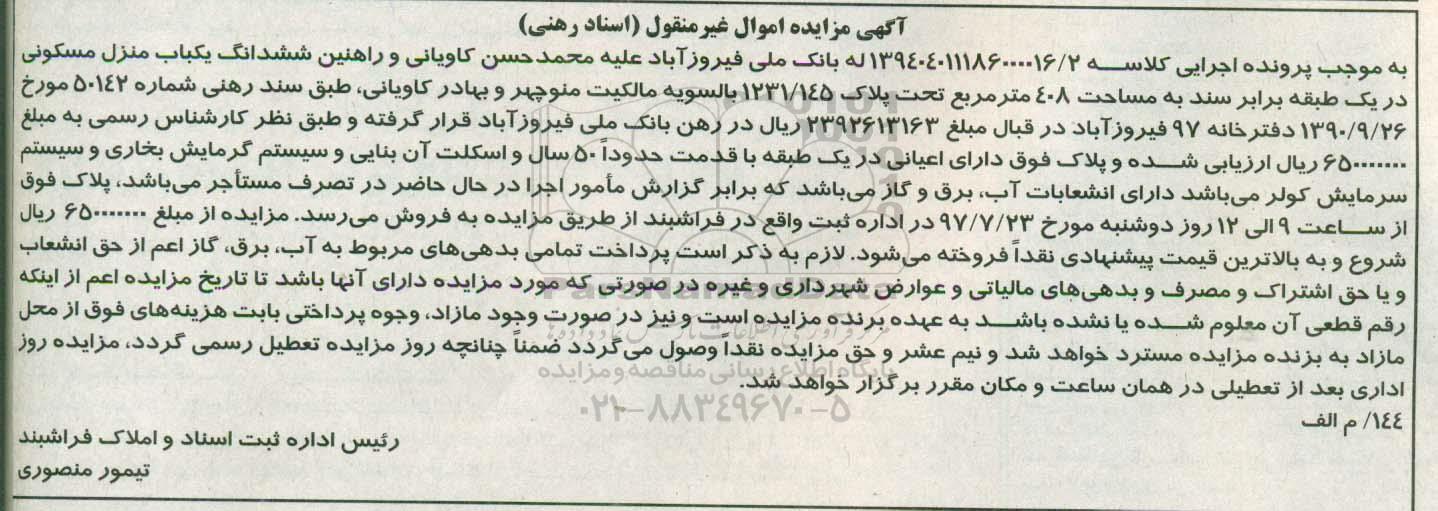 آگهی مزایده اموال غیرمنقول (اسناد رهنی)
به موجب پرونده اجرایی کلاسه ۱۳۹٤۰٤۰۱۱۱۸۶۰۰۰۰۱۶/۲ له بانک ملی فیروزآباد علیه محمدحسن کاویانی و راهنین ششدانگ یکباب منزل مسکونی
در یک طبقه برابر سند به مساحت ٤۰۸ مترمربع تحت پلاک ۱۲۳۱/۱٤۵ بالسویه مالکیت منوچهر و بهادر کاویانی، طبق سند رهنی شماره ۵۰۱٤۲ مورخ
۱۳۹۰/۹/۲۶ دفترخانه ۹۷ فیروزآباد در قبال مبلغ ۲۳۹۲۶۱۳۱۶۳ ریال در رهن بانک ملی فیروزآباد قرار گرفته و طبق نظر کارشناس رسمی به مبلغ
۶۵۰۰۰۰۰۰۰ ریال ارزیابی شده و پلاک فوق دارای اعیانی در یک طبقه با قدمت حدوداً ۵۰ سال و اسکلت آن بنایی و سیستم گرمایش بخاری و سیستم
سرمایش کولر می‌باشد دارای انشعابات آب، برق و گاز می‌باشد که برابر گزارش مأمور اجرا در حال حاضر در تصرف مستأجر می‌باشد، پلاک فوق
از ساعت ۹ الی ۱۲ روز دوشنبه مورخ ۹۷/۷/۲۳ در اداره ثبت واقع در فراشبند از طریق مزایده به فروش می‌رسد. مزایده از مبلغ ۶۵۰۰۰۰۰۰۰ ریال
شروع و به بالاترین قیمت پیشنهادی نقداً فروخته می‌شود. لازم به ذکر است پرداخت تمامی بدهی‌های مربوط به آب، برق، گاز اعم از حق انشعاب
و یا حق اشتراک و مصرف و بدهی‌های مالیاتی و عوارض شهرداری و غیره در صورتی که مورد مزایده دارای آنها باشد تا تاریخ مزایده اعم از اینکه
رقم قطعی آن معلوم شده یا نشده باشد به عهده برنده مزایده است و نیز در صورت وجود مازاد، وجوه پرداختی بابت هزینه‌های فوق از محل
مازاد به برنده مزایده مسترد خواهد شد و نیم عشر و حق مزایده نقداً وصول می‌گردد ضمناً چنانچه روز مزایده تعطیل رسمی گردد، مزایده روز
اداری بعد از تعطیلی در همان ساعت و مکان مقرر برگزار خواهد شد.
۱٤٤/ م الف
رئیس اداره ثبت اسناد و املاک فراشبند
تیمور منصوری
ParsNamadData
پایگاه اطلاع رسانی مناقصه و مزایده
۰۲۱-۸۸۳٤۹۶۷۰-۵